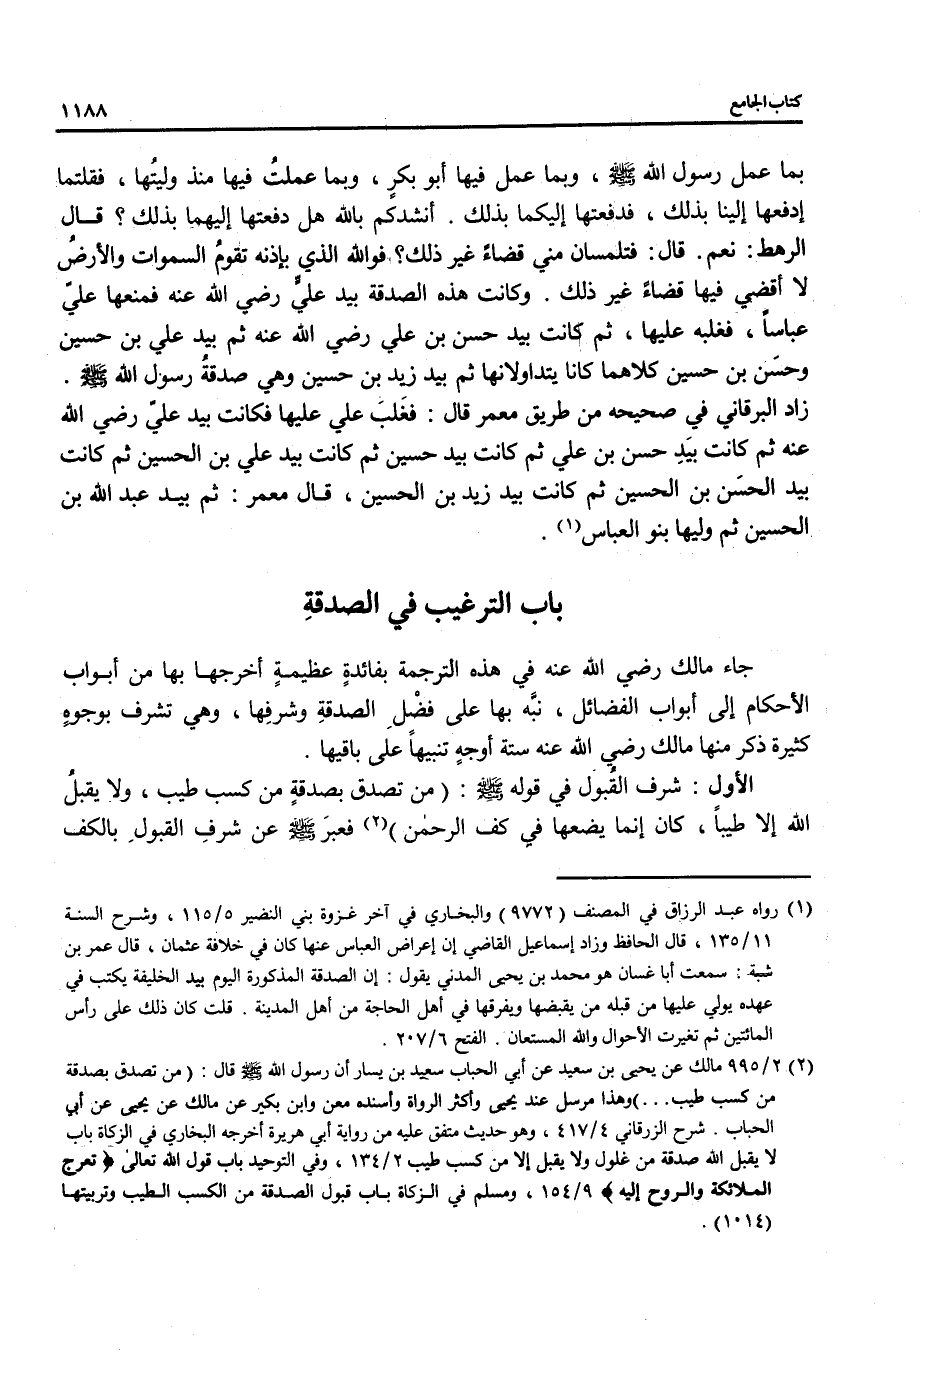 كتاب الجامع
١١٨٨
بما عمل رسول الله ﷺ ، وبما عمل فيها أبو بكرٍ ، وبما عملتُ فيها منذ وليتُها ، فقلتما
إدفعها إلينا بذلك ، فدفعتها إليكما بذلك . أنشدكم بالله هل دفعتها إليهما بذلك ؟ قـال
الرهط : نعم. قال: فتلمسان مني قضاءً غير ذلك؟ فوالله الذي بإذنه تقومُ السموات والأرضُ
لا أقضي فيها قضاءً غير ذلك . وكانت هذه الصدقة بيد عليٍّ رضي الله عنه فمنعها عليّ
عباساً ، فغلبه عليها ، ثم كانت بيد حسن بن علي رضي الله عنه ثم بيد علي بن حسين
وحسَن بن حسين كلاهما كانا يتداولانها ثم بيد زيد بن حسين وهي صدقةُ رسول الله ﷺ .
زاد البرقاني في صحيحه من طريق معمر قال : فغَلبَ علي عليها فكانت بيد عليّ رضي الله
عنه ثم كانت بيَدِ حسن بن علي ثم كانت بيد حسين ثم كانت بيد علي بن الحسين ثم كانت
بيد الحسَن بن الحسين ثم كانت بيد زيد بن الحسين ، قـال معمر : ثم بيـد عبد الله بن
الحسين ثم وليها بنو العباس(١) .
باب الترغيب في الصدقةِ
جاء مالك رضي الله عنه في هذه الترجمة بفائدةٍ عظيمـةٍ أخرجهـا بها من أبـواب
الأحكام إلى أبواب الفضائل ، نبَّه بها على فضْلِ الصدقةِ وشرفِها ، وهي تشرف بوجوهٍ
كثيرة ذكر منها مالك رضي الله عنه ستة أوجهٍ تنبيهاً على باقيها .
الأول : شرف القُبول في قوله ﷺ : ( من تصدق بصدقةٍ من كسب طيب ، ولا يقبلُ
الله إلا طيباً ، كان إنما يضعها في كف الرحمٰن )(٢) فعبرَ ﷺ عن شرفِ القبولِ بالكف
(١) رواه عبـد الرزاق في المصنف ( ٩٧٧٢) والبخاري في آخر غـزوة بني النضير ١١٥/٥ ، وشـرح السنـة
١٣٥/١١ ، قال الحافظ وزاد إسماعيل القاضي إن إعراض العباس عنها كان في خلافة عثمان ، قال عمر بن
شبة : سمعت أبا غسان هو محمد بن يحيى المدني يقول : إن الصدقة المذكورة اليوم بيد الخليفة يكتب في
عهده يولي عليها من قبله من يقبضها ويفرقها في أهل الحاجة من أهل المدينة . قلت كان ذلك على رأس
المائتين ثم تغيرت الأحوال والله المستعان . الفتح ٢٠٧/٦ .
(٢) ٩٩٥/٢ مالك عن يحيى بن سعيد عن أبي الحباب سعيد بن يسار أن رسول الله ﷺ قال : ( من تصدق بصدقة
من كسب طيب. . .)وهذا مرسل عند يحيى وأكثر الرواة وأسنده معن وابن بكير عن مالك عن يحيى عن أبي
الحباب . شرح الزرقاني ٤١٧/٤ ، وهو حديث متفق عليه من رواية أبي هريرة أخرجه البخاري في الزكاة باب
لا يقبل الله صدقة من غلول ولا يقبل إلا من كسب طيب ١٣٤/٢ ، وفي التوحيد باب قول الله تعالىٰ ﴿ تعرج
الملائكة والروح إليه ﴾ ١٥٤/٩ ، ومسلم في الـزكاة بـاب قبول الصدقة من الكسب الـطيب وتربيتهـا
(١٠١٤) .